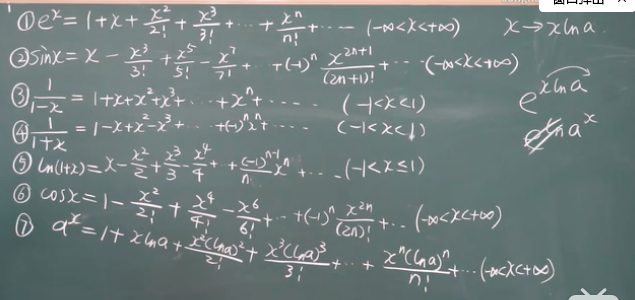 ① e^x = 1+x+x²/2!+x³/3!+⋯+xⁿ/n!+⋯ (-∞<x<+∞)
② sinx = x-x³/3!+x⁵/5!-x⁷/7!+⋯+(-1)ⁿ x^(2n+1)/(2n+1)!+⋯ (-∞<x<+∞)
③ 1/(1-x) = 1+x+x²+x³+⋯+xⁿ+⋯ (-1<x<1)
④ 1/(1+x) = 1-x+x²-x³+⋯+(-1)ⁿxⁿ+⋯ (-1<x<1)
⑤ ln(1+x) = x-x²/2+x³/3-x⁴/4+⋯+(-1)^(n-1)/n xⁿ+⋯ (-1<x≤1)
⑥ cosx = 1-x²/2!+x⁴/4!-x⁶/6!+⋯+(-1)ⁿ x^(2n)/(2n)!+⋯ (-∞<x<+∞)
⑦ a^x = 1+xlna+x²(lna)²/2!+x³(lna)³/3!+⋯+xⁿ(lna)ⁿ/n!+⋯ (-∞<x<+∞)
x→xlna
e^(xlna)
lna^x